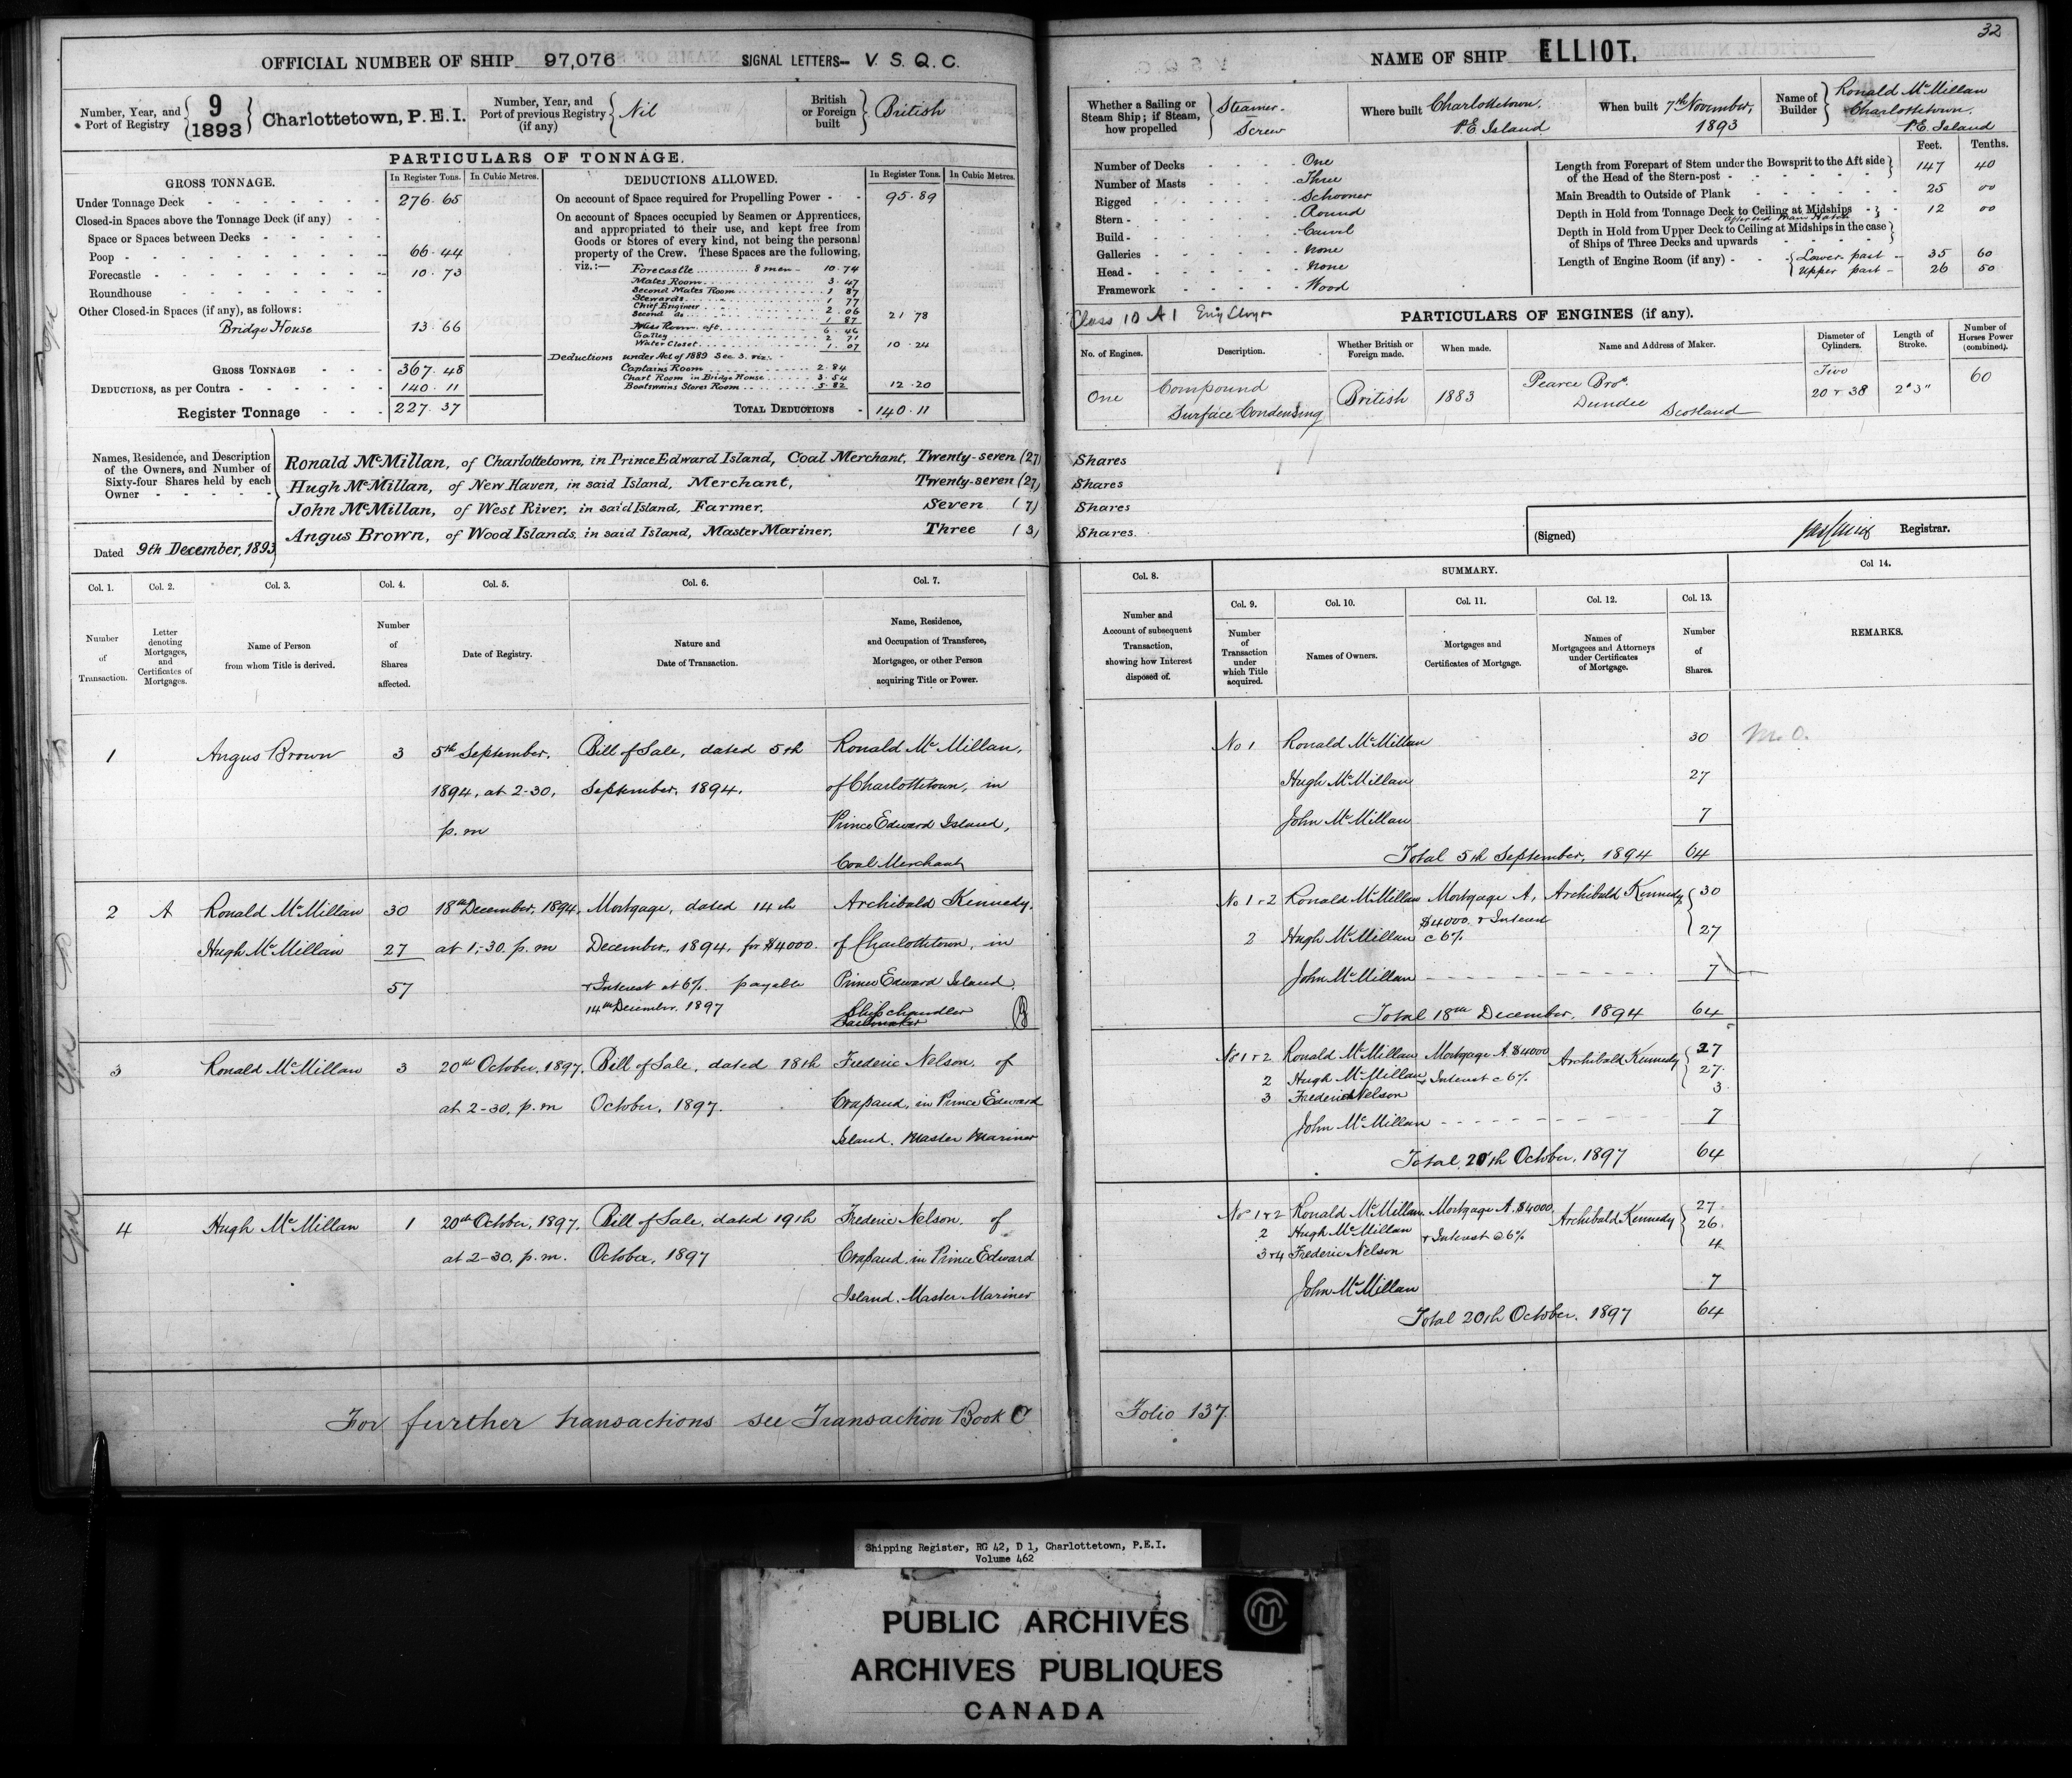 32
OFFICIAL NUMBER OF SHIP 97,076 SIGNAL LETTERS-- V. S. Q. C.
Number, Year, and Port of Registry { 9 1893 } Charlottetown, P.E.I.
Number, Year, and Port of previous Registry (if any) { Nil
British or Foreign built } British
PARTICULARS OF TONNAGE.
GROSS TONNAGE. In Register Tons. In Cubic Metres.
Under Tonnage Deck 276.65
Closed-in Spaces above the Tonnage Deck (if any)
Space or Spaces between Decks
Poop 66.44
Forecastle 10.73
Roundhouse
Other Closed-in Spaces (if any), as follows:
Bridge House 13.66
GROSS TONNAGE 367.48
DEDUCTIONS, as per Contra 140.11
Register Tonnage 227.37
DEDUCTIONS ALLOWED. In Register Tons. In Cubic Metres.
On account of Space required for Propelling Power 95.89
On account of Spaces occupied by Seamen or Apprentices,
and appropriated to their use, and kept free from
Goods or Stores of every kind, not being the personal
property of the Crew. These Spaces are the following,
viz.:—
Forecastle 8 men 10.74
Mates Room 3.47
Second Mates Room 1 87
Stewards 1 77
Chief Engineer 2.06
Second do 1 87 21 78
Mess Room aft 6.46
Galley 2 71
Water Closet 1.07 10.24
Deductions under Act of 1889 Sec. 3. viz:-
Captains Room 2.84
Chart Room in Bridge House 3.54
Boatswains Stores Room 5.82 12.20
TOTAL DEDUCTIONS 140.11
Names, Residence, and Description of the Owners, and Number of Sixty-four Shares held by each Owner
Ronald McMillan, of Charlottetown, in Prince Edward Island, Coal Merchant, Twenty-seven (27) Shares
Hugh McMillan, of New Haven, in said Island, Merchant, Twenty-seven (27) Shares
John McMillan, of West River, in said Island, Farmer, Seven (7) Shares
Angus Brown, of Wood Islands, in said Island, Master Mariner, Three (3) Shares.
Dated 9th December, 1893
NAME OF SHIP ELLIOT.
Whether a Sailing or Steam Ship; if Steam, how propelled } Steamer. Screw
Where built Charlottetown. P.E Island
When built 7th November, 1893
Name of Builder { Ronald McMillan Charlottetown. P.E. Island
Number of Decks One
Number of Masts Three
Rigged Schooner
Stern Round
Build Carvel
Galleries None
Head None
Framework Wood
Feet. Tenths.
Length from Forepart of Stem under the Bowsprit to the Aft side of the Head of the Stern-post 147 40
Main Breadth to Outside of Plank 25 00
Depth in Hold from Tonnage Deck to Ceiling at Midships 12 00
after end Main Hatch
Depth in Hold from Upper Deck to Ceiling at Midships in the case of Ships of Three Decks and upwards
Length of Engine Room (if any) { Lower part 35 60
Upper part 26 50
Class 10 A1
PARTICULARS OF ENGINES (if any).
No. of Engines. Description. Whether British or Foreign made. When made. Name and Address of Maker. Diameter of Cylinders. Length of Stroke. Number of Horses Power (combined).
One Compound Surface Condensing British 1883 Pearce Bros. Dundee Scotland Two 20 & 38 2' 3" 60
(Signed) Registrar.
Col. 1. Number of Transaction.
Col. 2. Letter denoting Mortgages, and Certificates of Mortgages.
Col. 3. Name of Person from whom Title is derived.
Col. 4. Number of Shares affected.
Col. 5. Date of Registry.
Col. 6. Nature and Date of Transaction.
Col. 7. Name, Residence, and Occupation of Transferee, Mortgagee, or other Person acquiring Title or Power.
Col. 8. Number and Account of subsequent Transaction, showing how Interest disposed of.
SUMMARY.
Col. 9. Number of Transaction under which Title acquired.
Col. 10. Names of Owners.
Col. 11. Mortgages and Certificates of Mortgage.
Col. 12. Names of Mortgagees and Attorneys under Certificates of Mortgage.
Col. 13. Number of Shares.
Col 14. REMARKS.
1 Angus Brown 3 5th September, Bill of Sale, dated 5th Ronald McMillan,
1894, at 2-30, September, 1894. of Charlottetown, in
p.m Prince Edward Island,
Coal Merchant
No 1 Ronald McMillan 30 M.O.
Hugh McMillan 27
John McMillan 7
Total 5th September, 1894 64
2 A Ronald McMillan 30 18th December, 1894, Mortgage, dated 14th Archibald Kennedy,
Hugh McMillan 27 at 1.-30. p.m December, 1894, for $4000. of Charlottetown, in
57 & Interest at 6%. payable Prince Edward Island.
14th December. 1897 Shipchandler
Sailmaker
No 1 & 2 Ronald McMillan Mortgage A, Archibald Kennedy { 30
$4000. & Interest
2 Hugh McMillan @ 6% 27
John McMillan 7
Total 18th December, 1894 64
3 Ronald McMillan 3 20th October, 1897, Bill of Sale, dated 18th Frederic Nelson, of
at 2-30, p.m October, 1897. Crapaud, in Prince Edward
Island. Master Mariner
No 1 & 2 Ronald McMillan Mortgage A. $4000 Archibald Kennedy { 27
2 Hugh McMillan & Interest @ 6% 27.
3 Frederic Nelson 3
John McMillan 7
Total, 20th October, 1897 64
4 Hugh McMillan 1 20th October, 1897. Bill of Sale, dated 19th Frederic Nelson, of
at 2-30, p.m. October, 1897 Crapaud, in Prince Edward
Island. Master Mariner
No 1 & 2 Ronald McMillan. Mortgage A. $4000, Archibald Kennedy { 27.
2 Hugh McMillan & Interest @ 6% 26.
3 & 4 Frederic Nelson 4
John McMillan 7
Total 20th October, 1897 64
For further transactions see Transaction Book C Folio 137.
Shipping Register, RG 42, D 1, Charlottetown, P.E.I.
Volume 462
PUBLIC ARCHIVES
ARCHIVES PUBLIQUES
CANADA